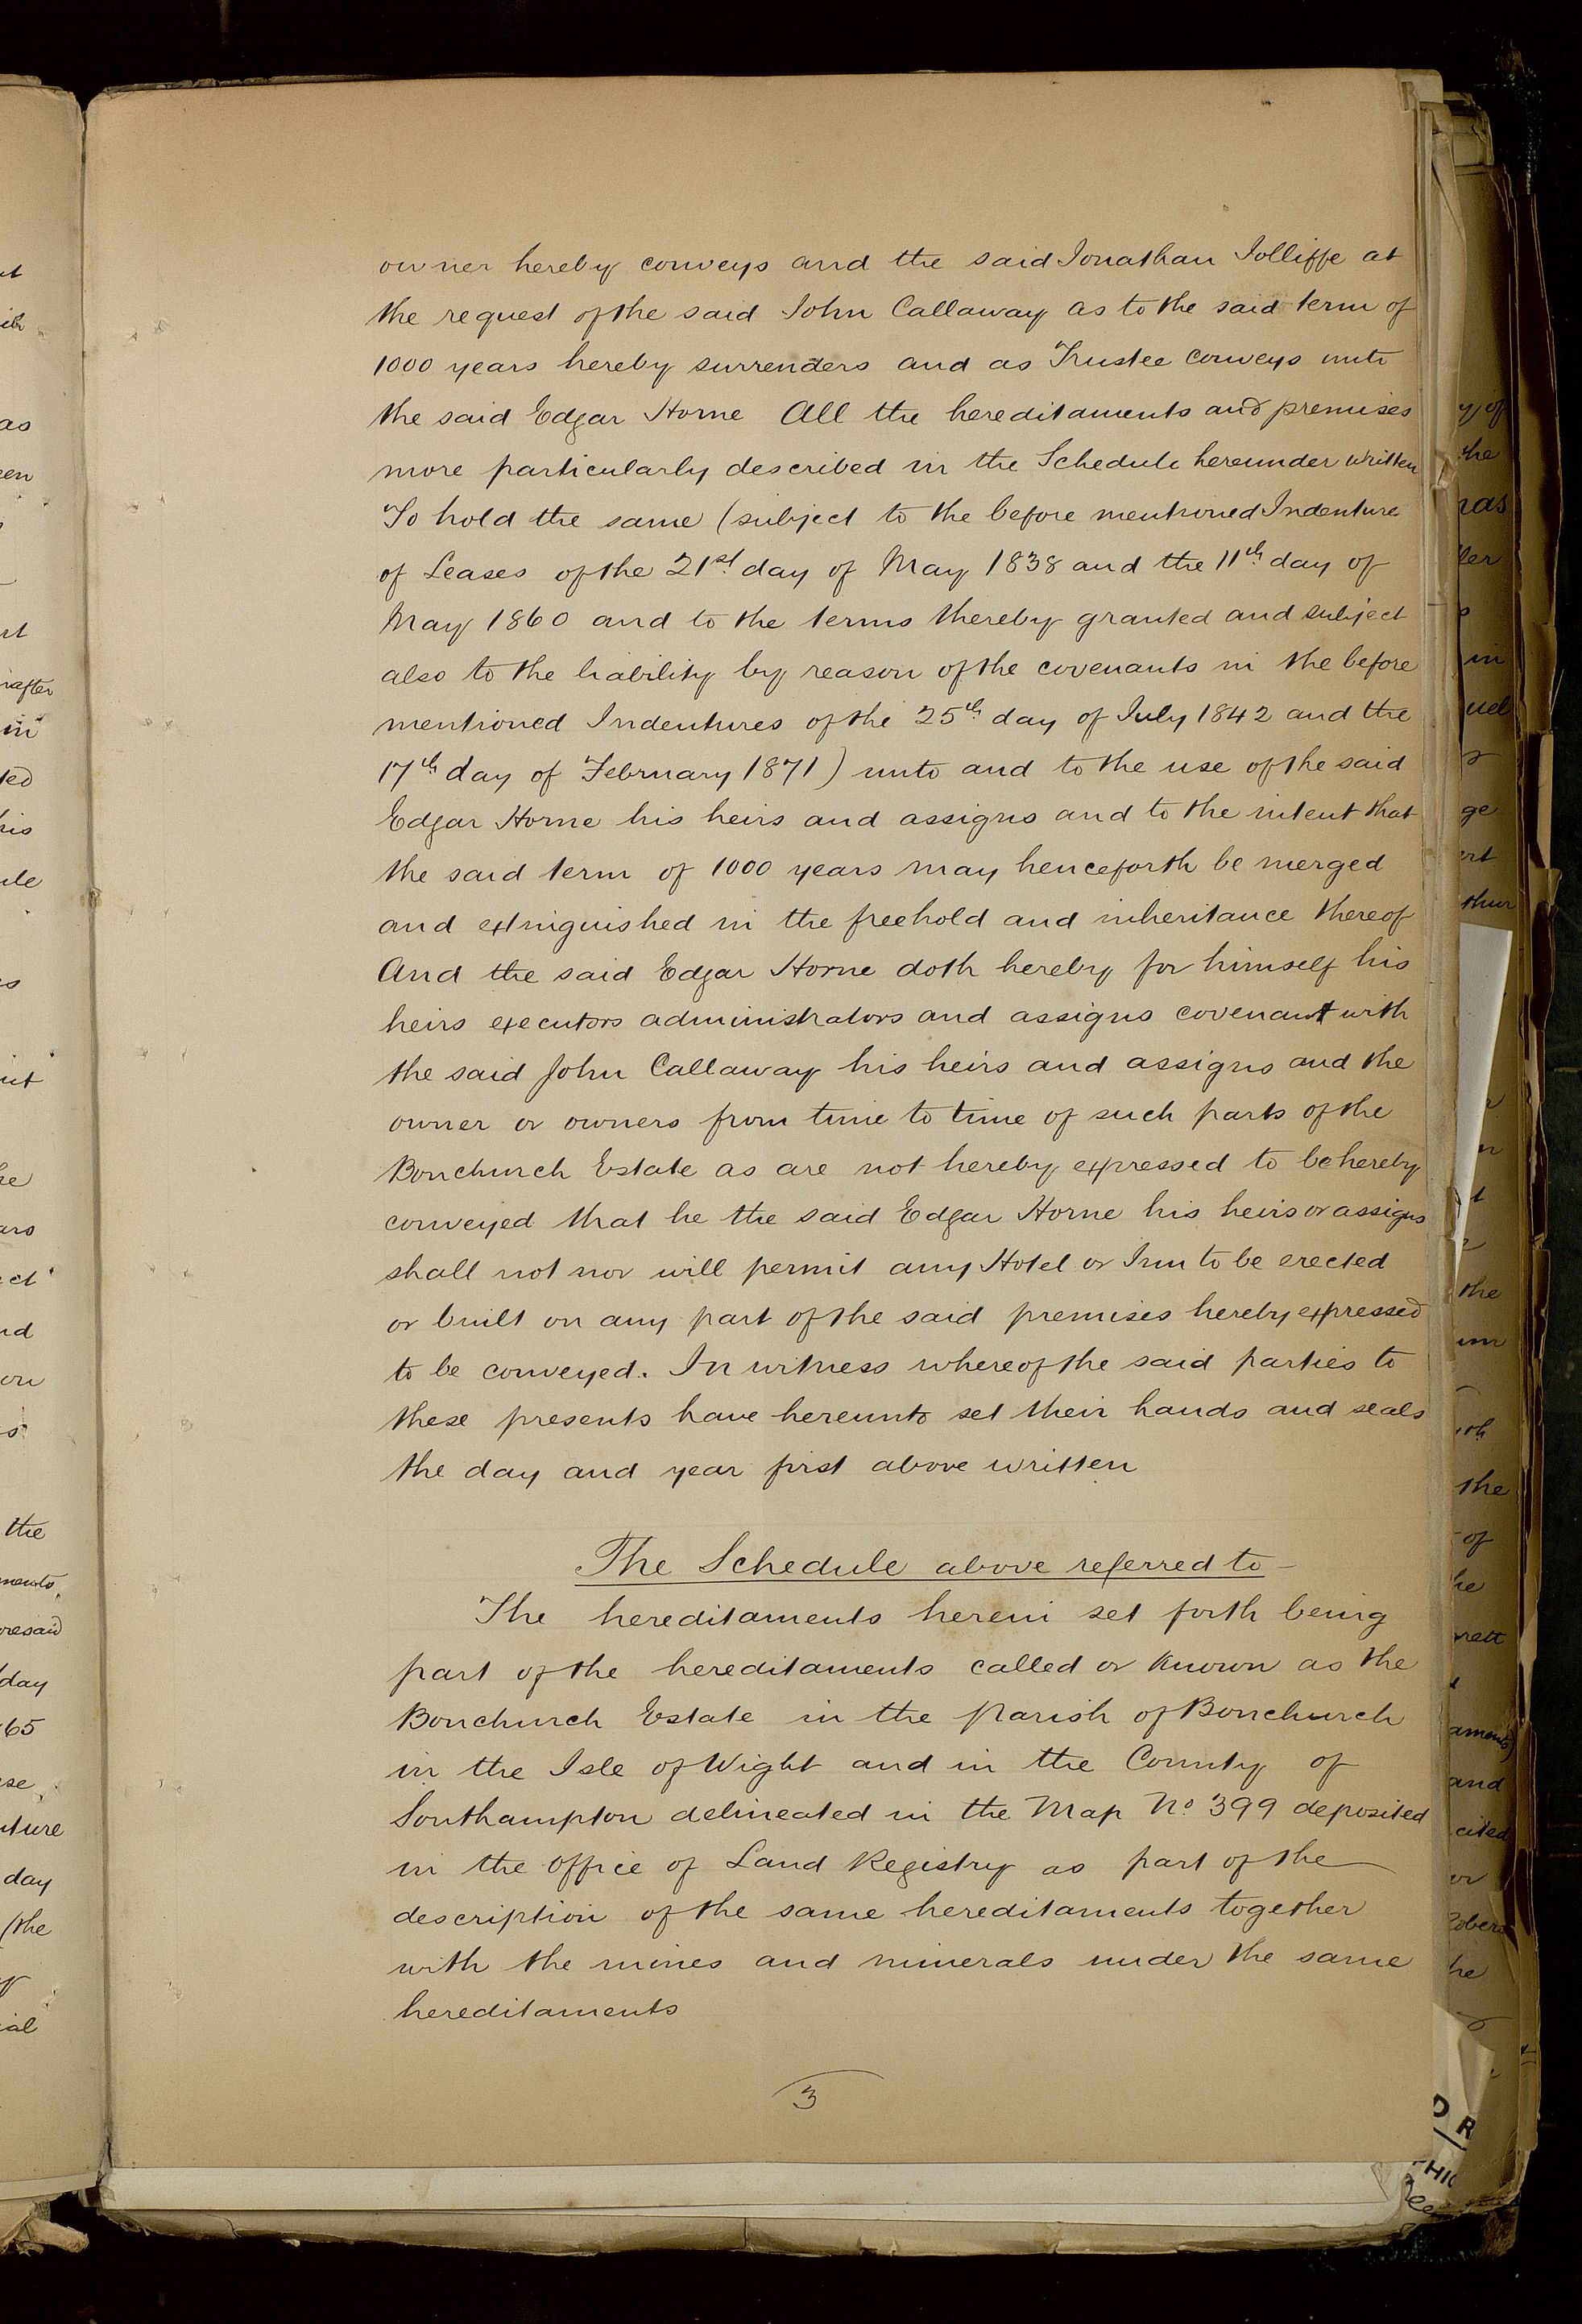 owner hereby conveys and the said Jonathan Jolliffe at
the request of the said John Callaway as to the said term of
1000 years hereby surrenders and as Trustee conveys unto
the said Edgar Horne All the hereditaments and premises
more particularly described in the Schedule hereunder written
To hold the same (subject to the before mentioned Indenture
of Leases of the 21st day of May 1838 and the 11th day of
May 1860 and to the terms thereby granted and subject
also to the liability by reason of the covenants in the before
mentioned Indentures of the 25th day of July 1842 and the
17th day of February 1871) unto and to the use of the said
Edgar Horne his heirs and assigns and to the intent that
the said term of 1000 years may henceforth be merged
and extinguished in the freehold and inheritance thereof
And the said Edgar Horne doth hereby for himself his
heirs executors administrators and assigns covenant with
the said John Callaway his heirs and assigns and the
owner or owners from time to time of such parts of the
Bonchurch Estate as are not hereby expressed to be hereby
conveyed that he the said Edgar Horne his heirs or assigns
shall not nor will permit any Hotel or Inn to be erected
or built on any part of the said premises hereby expressed
to be conveyed. In witness whereof the said parties to
these presents have hereunto set their hands and seals
the day and year first above written
The Schedule above referred to
The hereditaments herein set forth being
part of the hereditaments called or known as the
Bonchurch Estate in the Parish of Bonchurch
in the Isle of Wight and in the County of
Southampton delineated in the Map No 399 deposited
in the office of Land Registry as part of the
description of the same hereditaments together
with the mines and minerals under the same
hereditaments
3